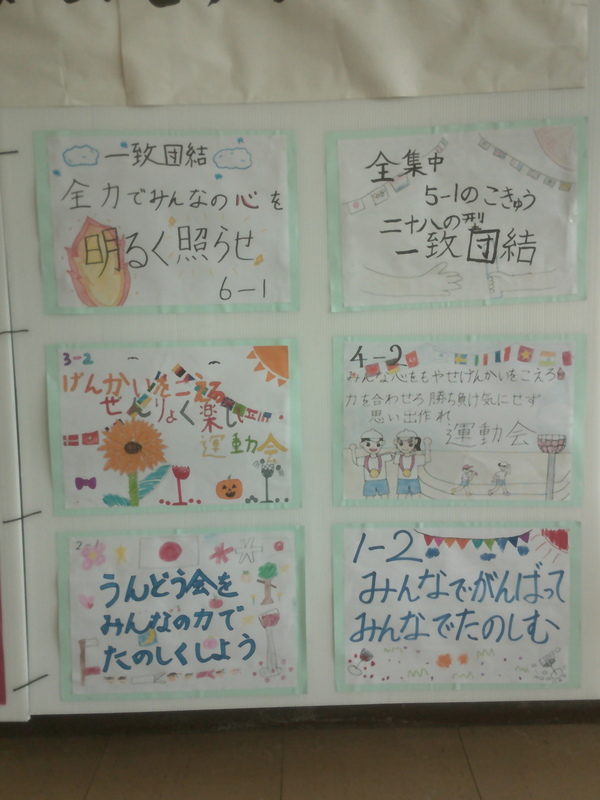 一致団結
全力でみんなの心を
明るく照らせ
6-1
全集中
5-1のこきゅう
二十八の型
一致団結
3-2
げんかいをこえろ
せんりょく楽しむ
運動会
4-2
みんな心をもやせげんかいをこえろ
力を合わせろ勝ち負け気にせず
思い出作れ
運動会
2-1
うんどう会を
みんなの力で
たのしくしよう
1-2
みんなでがんばって
みんなでたのしむ